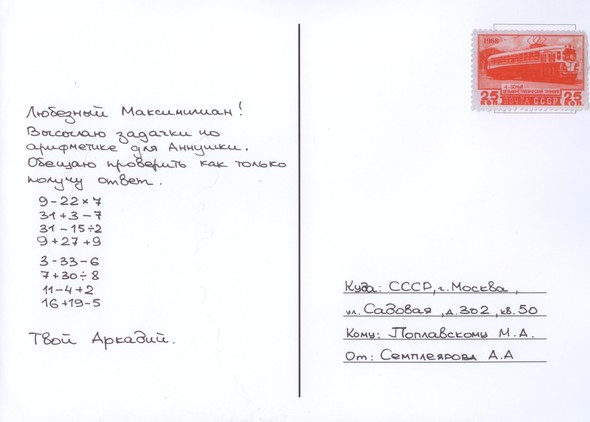 Любезный Максимилиан!
Высылаю задачки по
арифметике для Аннушки.
Обещаю проверить как только
получу ответ.
9-22×7
31+3-7
31-15÷2
9+27+9
3-33-6
7+30÷8
11-4+2
16+19-5
Твой Аркадий.
25 коп.
ПОЧТА СССР
25 коп.
Куда: СССР, г. Москва,
ул. Садовая, д. 302, кв. 50
Кому: Поплавскому М.А.
От: Семплеярова А.А